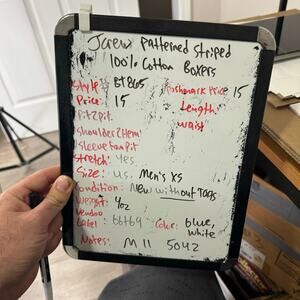 JCrew patterned striped
100% Cotton Boxers
Style: BT865 Poshmark Price 15
Price: 15 Length
Pit2pit: waist
Shoulder2Hem:
Sleeve from Pit
Stretch: Yes
Size: U.S. Men's XS
Condition: New without Tags
Weight: 4oz
Vendoo
Label: 66f69 Color: blue,
white
Notes: M11 5042